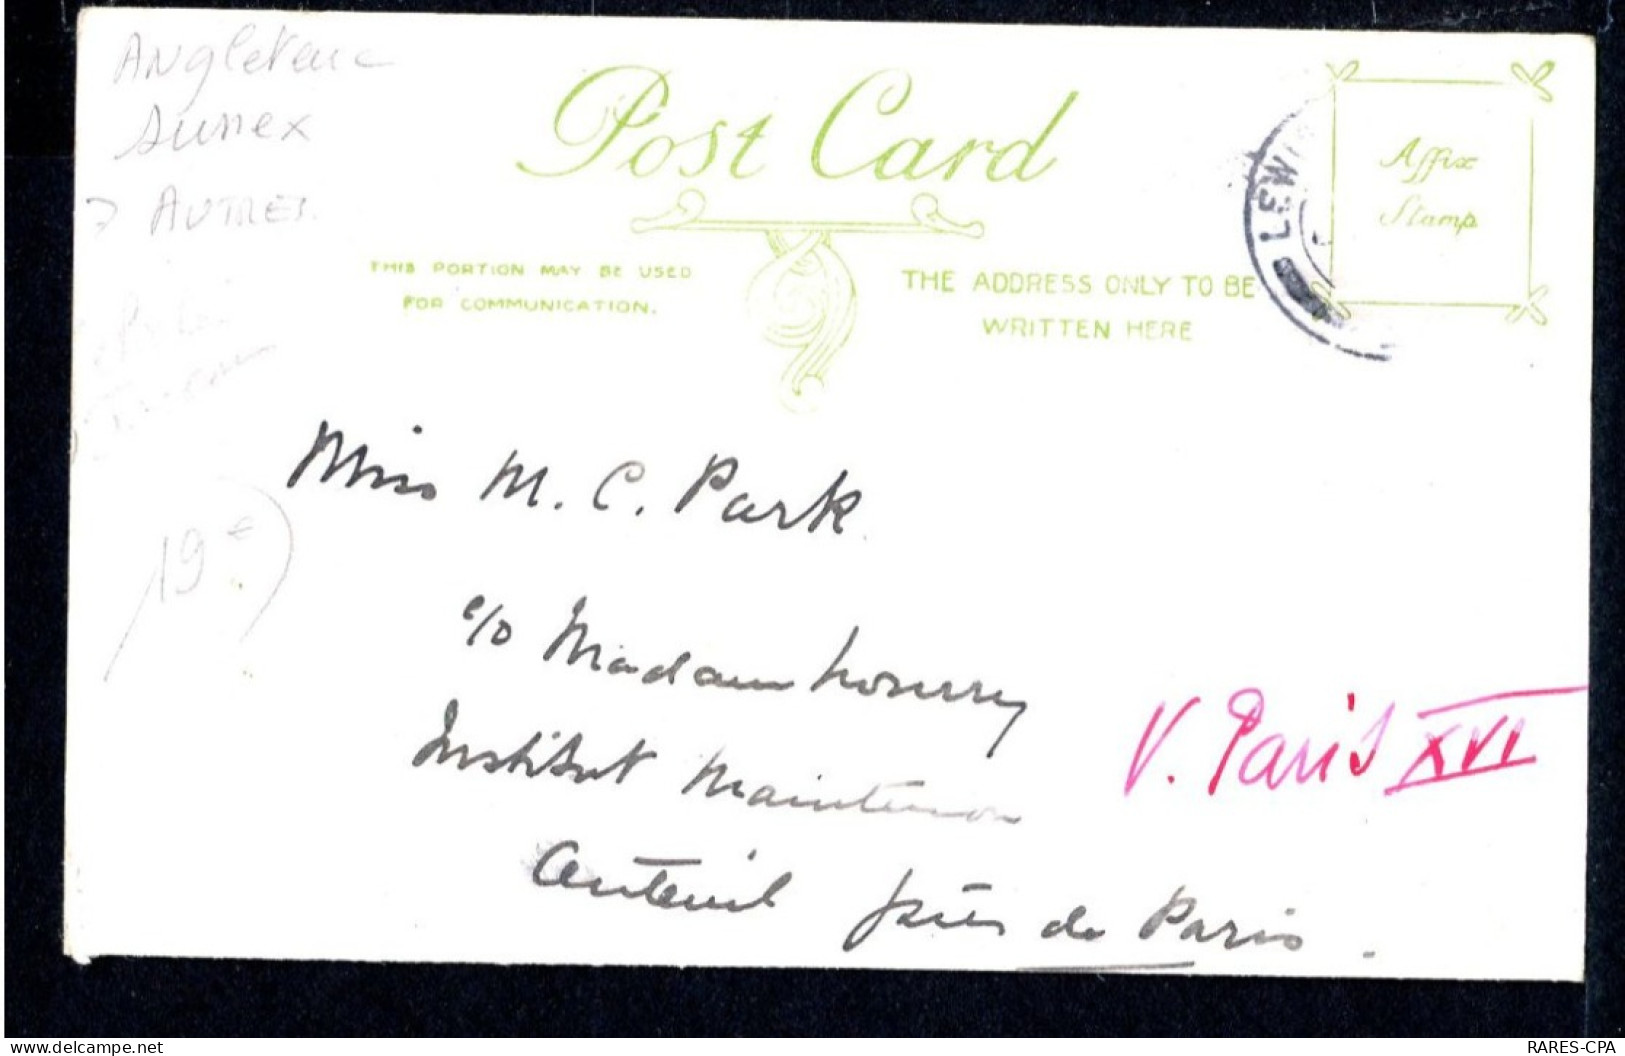 Angleterre
Sussex
7 AUTRES.
Post Card
Affix
Stamp
LEW
THIS PORTION MAY BE USED
FOR COMMUNICATION.
THE ADDRESS ONLY TO BE
WRITTEN HERE
19 €
Miss M. C. Park.
c/o Madam
Institut Maintenon
V. Paris XVI
Auteuil près de Paris.
delcampe.net
RARES-CPA